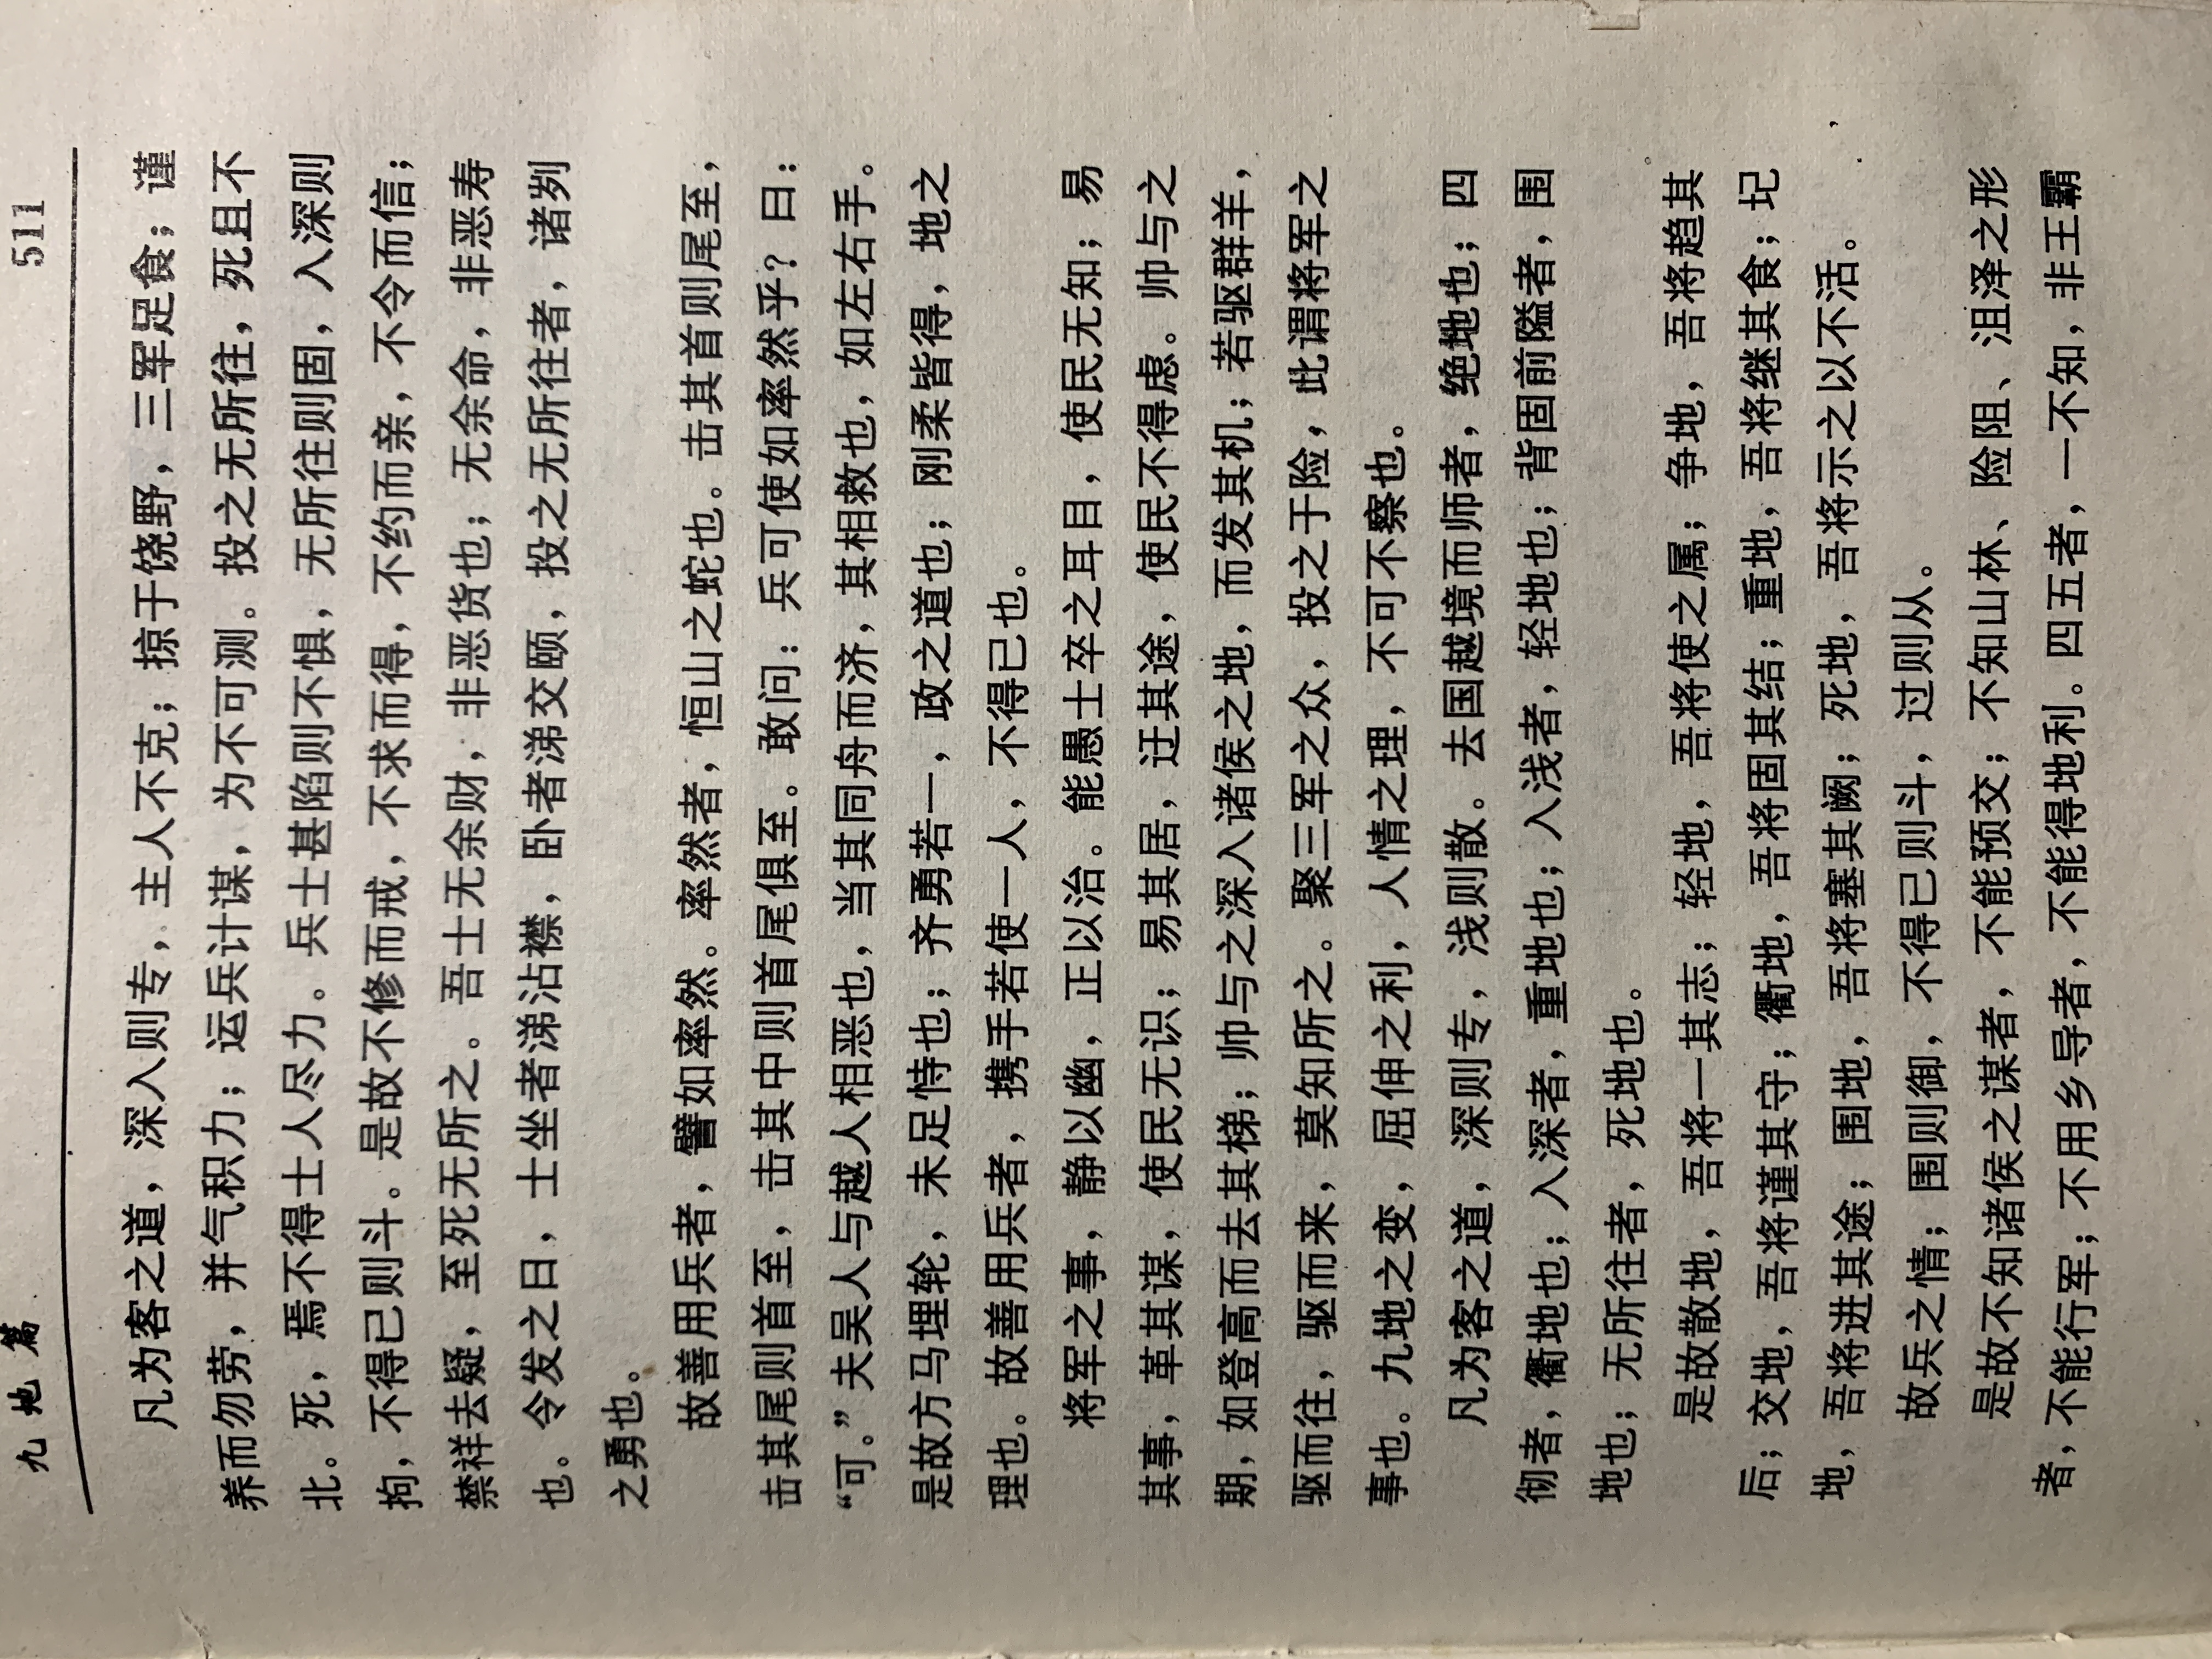 九地篇 511
凡为客之道，深入则专，主人不克；掠于饶野，三军足食；谨
养而勿劳，并气积力；运兵计谋，为不可测。投之无所往，死且不
北。死，焉不得士人尽力。兵士甚陷则不惧，无所往则固，入深则
拘，不得已则斗。是故不修而戒，不求而得，不约而亲，不令而信；
禁祥去疑，至死无所之。吾士无余财，非恶货也；无余命，非恶寿
也。令发之日，士坐者涕沾襟，卧者涕交颐，投之无所往者，诸刿
之勇也。
故善用兵者，譬如率然。率然者，恒山之蛇也。击其首则尾至，
击其尾则首至，击其中则首尾俱至。敢问：兵可使如率然乎？曰：
“可。”夫吴人与越人相恶也，当其同舟而济，其相救也，如左右手。
是故方马埋轮，未足恃也；齐勇若一，政之道也；刚柔皆得，地之
理也。故善用兵者，携手若使一人，不得已也。
将军之事，静以幽，正以治。能愚士卒之耳目，使民无知；易
其事，革其谋，使民无识；易其居，迂其途，使民不得虑。帅与之
期，如登高而去其梯；帅与之深入诸侯之地，而发其机；若驱群羊，
驱而往，驱而来，莫知所之。聚三军之众，投之于险，此谓将军之
事也。九地之变，屈伸之利，人情之理，不可不察也。
凡为客之道，深则专，浅则散。去国越境而师者，绝地也；四
彻者，衢地也；入深者，重地也；入浅者，轻地也；背固前隘者，围
地也；无所往者，死地也。
是故散地，吾将一其志；轻地，吾将使之属；争地，吾将趋其
后；交地，吾将谨其守；衢地，吾将固其结；重地，吾将继其食；圮
地，吾将进其途；围地，吾将塞其阙；死地，吾将示之以不活。
故兵之情；围则御，不得已则斗，过则从。
是故不知诸侯之谋者，不能预交；不知山林、险阻、沮泽之形
者，不能行军；不用乡导者，不能得地利。四五者，一不知，非王霸